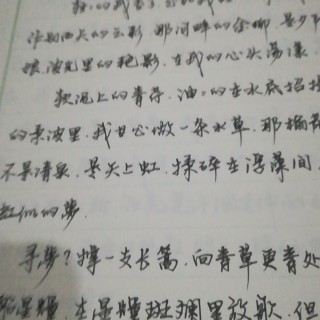 轻的我走了
作别西天的云彩.那河畔的金柳.是夕阳
娘.波光里的艳影.在我的心头荡漾.
软泥上的青荇.油〃的在水底招摇
的柔波里.我甘心做一条水草.那榆荫
不是清泉.是天上虹.揉碎在浮藻间.
虹似的梦.
寻梦?撑一支长篙.向青草更青处
船星辉.在星辉斑斓里放歌.但